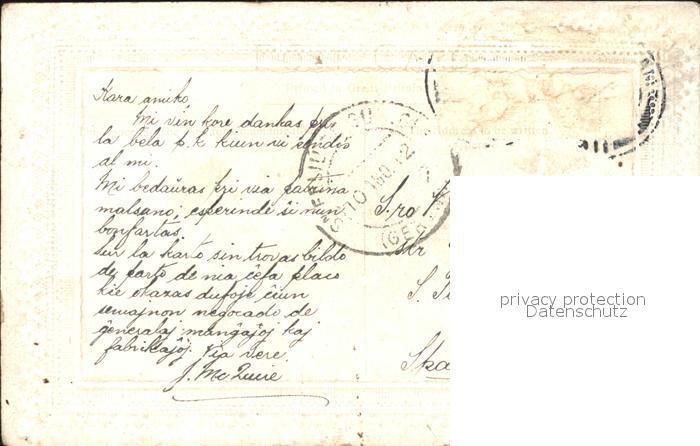 Kara amiko,
Mi vin kore dankas pri
la bela p.k kiun vi sendis
al mi.
Mi bedaŭras pri via patrina
malsano; esperinde ŝi nun
bonfartas.
Sur la karto sin trovas bildo
de parto de nia ĉefa placo
kie okazas dufoje ĉiun
semajnon negocado de
ĝeneralaj manĝaĵoj kaj
fabrikaĵoj. Via vere,
J. McQuire
S.ro
Str
S.
Ska
privacy protection
Datenschutz